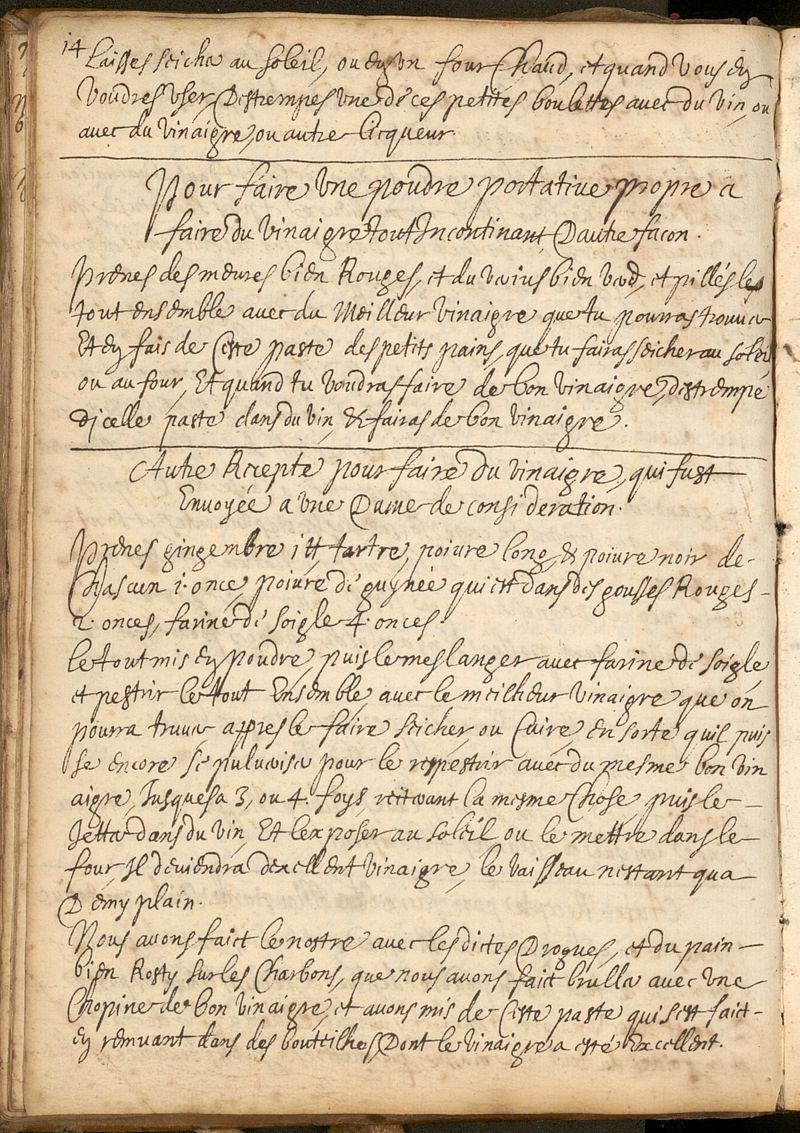 14
Laisses seicher au soleil, ou en un four chaud, et quand vous en
voudres user Destrempes une de ces petites boulettes avec du vin, ou
avec du vinaigre, ou autre licqueur.
Pour faire une poudre portative propre a
faire du vinaigre tout Incontinant, D'autre facon.
Prenes des meures bien Rouges, et du verius bien verd, et pillés les
tout ensemble avec du Meilleur vinaigre que tu pourras trouver
Et en fais de Ceste paste des petits pains, que tu fairas seicher au soleil
ou au four, Et quand tu voudras faire de bon vinaigre, destrempe
d'icelle paste dans du vin, & fairas de bon vinaigre.
Autre Recepte pour faire du vinaigre, qui fust
Envoyée a une Dame de consideration.
Prenes gingembre 1 ℔ tartre, poivre long, & poivre noir de
Chascun 1. once, poivre de guynée qui est dans des gousses Rouges
2. onces, farine de soigle 4. onces
le tout mis en poudre, puis le meslanger avec farine de soigle
et pestrir le tout Ensemble avec le meilheur vinaigre que on
pourra truver appres le faire seicher ou Cuire en sorte quil puis
se encore se pulveriser pour le repestrir avec du mesme bon vin
aigre, Jusques a 3, ou 4. foys, reiterant la mesme Chose puis le
Jetter dans du vin, Et l'exposer au soleil ou le mettre dans le
four, Il deviendra d'excellent vinaigre, le vaisseau n'estant qua
Demy plain.
Nous avons faict le nostre avec lesdictes Drogues, et du pain
bien Rosty sur les Charbons, que nous avons faict bruller avec une
Chopine de bon vinaigre, et avons mis de Ceste paste qui s'est faict
en remuant dans des bouteilhes, Dont le vinaigre a esté Excellent.